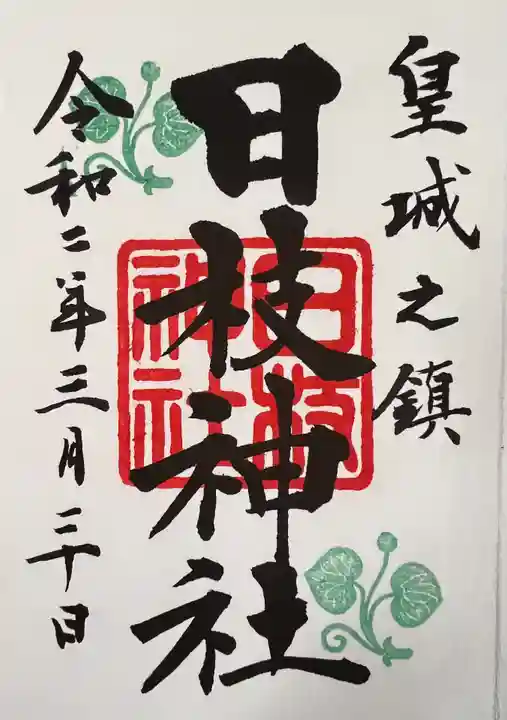 皇城之鎮
日枝神社
日枝神社
令和二年三月三十日